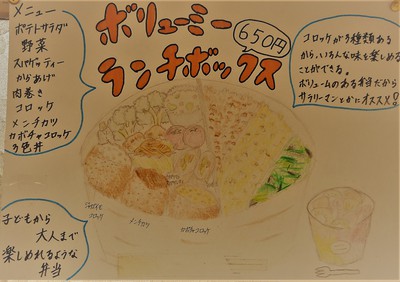 ボリューミー
ランチボックス
650円
メニュー
ポテトサラダ
野菜
スパゲッティー
からあげ
肉巻き
コロッケ
メンチカツ
カボチャコロッケ
3色丼
コロッケが3種類ある
から、いろんな味を楽しめる
ことができる。
ボリュームのある弁当だから
サラリーマンとかにオススメ!
じゃがいも
コロッケ
メンチカツ
カボチャコロッケ
子どもから
大人まで
楽しめれるような
弁当